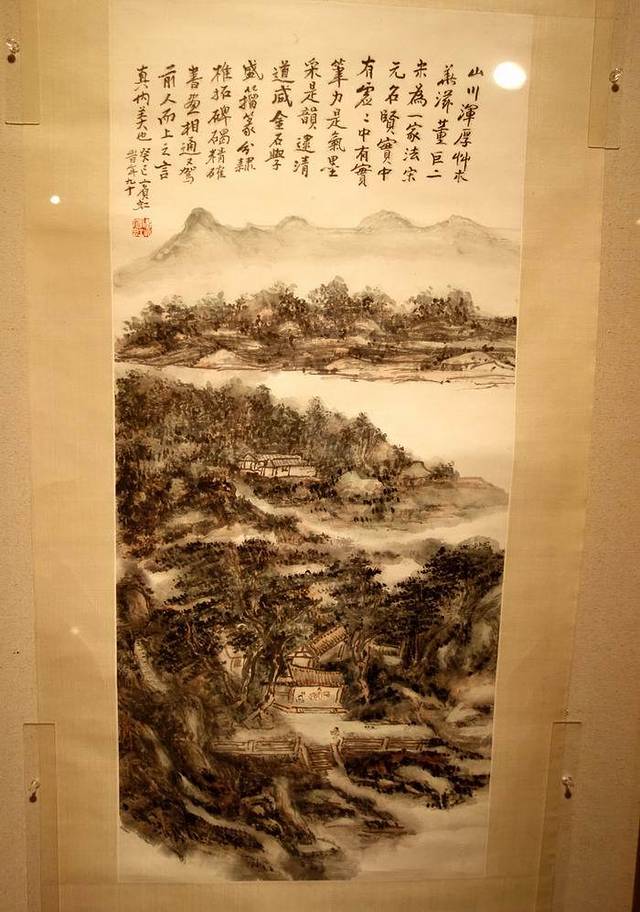 山川渾厚艸木
華滋董巨二
米為一家法宋
元名賢實中
有虛〻中有實
筆力是氣墨
采是韻逮清
道咸金石學
盛籀篆分隸
椎拓碑碣精確
書畫相通又駕
前人而上之言
真內美也 癸巳賓虹
年九十